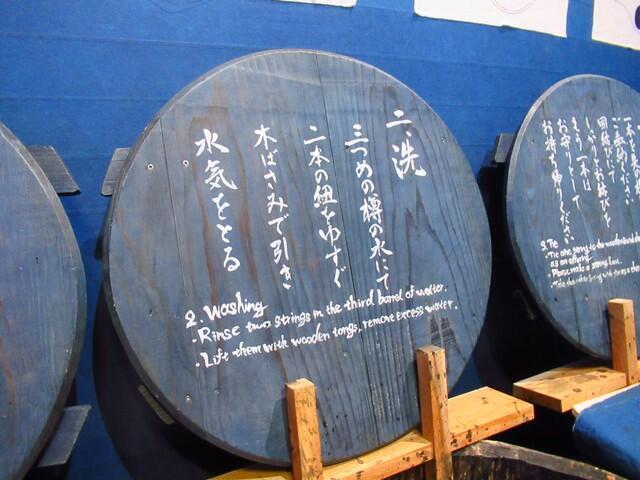 二、洗
三つめの樽の水にて
二本の紐をゆすぐ
木ばさみで引き
水気をとる
2. Washing
・Rinse two strings in the third barrel of water.
・Lift them with wooden tongs, remove excess water.
ご奉納ください
もう一本は
お守りとして
お持ち帰りください
3. Tie
・Tie one string to the
as an offering.
・Please make a strong